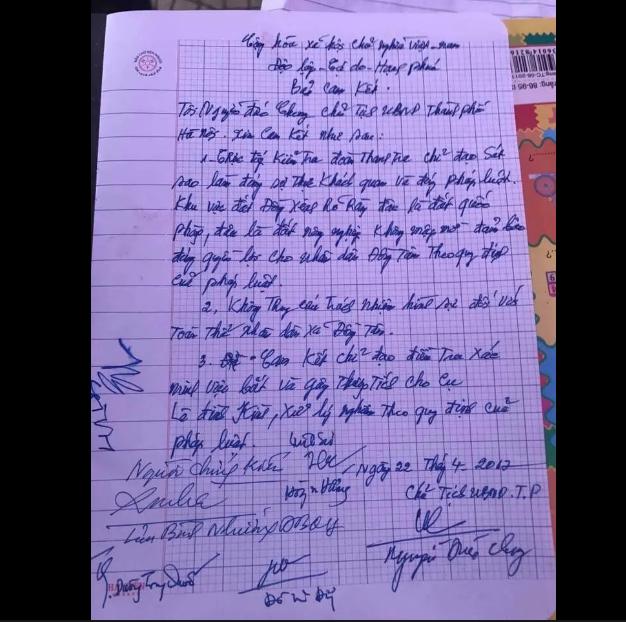 Cộng hòa xã hội chủ nghĩa việt-nam
Độc lập - Tự do - Hạnh phúc
Bản cam kết.
Tôi Nguyễn Đức Chung chủ tịch UBND Thành phố
Hà Nội. xin cam kết như sau:
1- Trực tiếp kiểm tra đoàn thanh tra chỉ đạo sát
sao làm đúng sự thực khách quan và đúng pháp luật.
Khu vực đất Đồng Xênh Rõ Ràng đâu là đất quốc
phòng, đâu là đất nông nghiệp không mập mờ - đảm bảo
đúng quyền lợi cho nhân dân Đồng Tâm theo quy định
của pháp luật
2, Không truy cứu trách nhiệm hình sự đối với
toàn thể nhân dân xã Đồng Tâm.
3. Cam kết chỉ đạo điều tra xác
minh việc bắt và gây thương tích cho cụ
Lê Đình Kình, xử lý nghiêm theo quy định của
pháp luật.
Luật sư
Người chứng kiến
Ngày 22 Thg 4-2017
Chủ Tịch UBND.T.P
Lưu Bình Nhưỡng ĐBQH
Nguyễn Đức Chung
Dương Trung Quốc